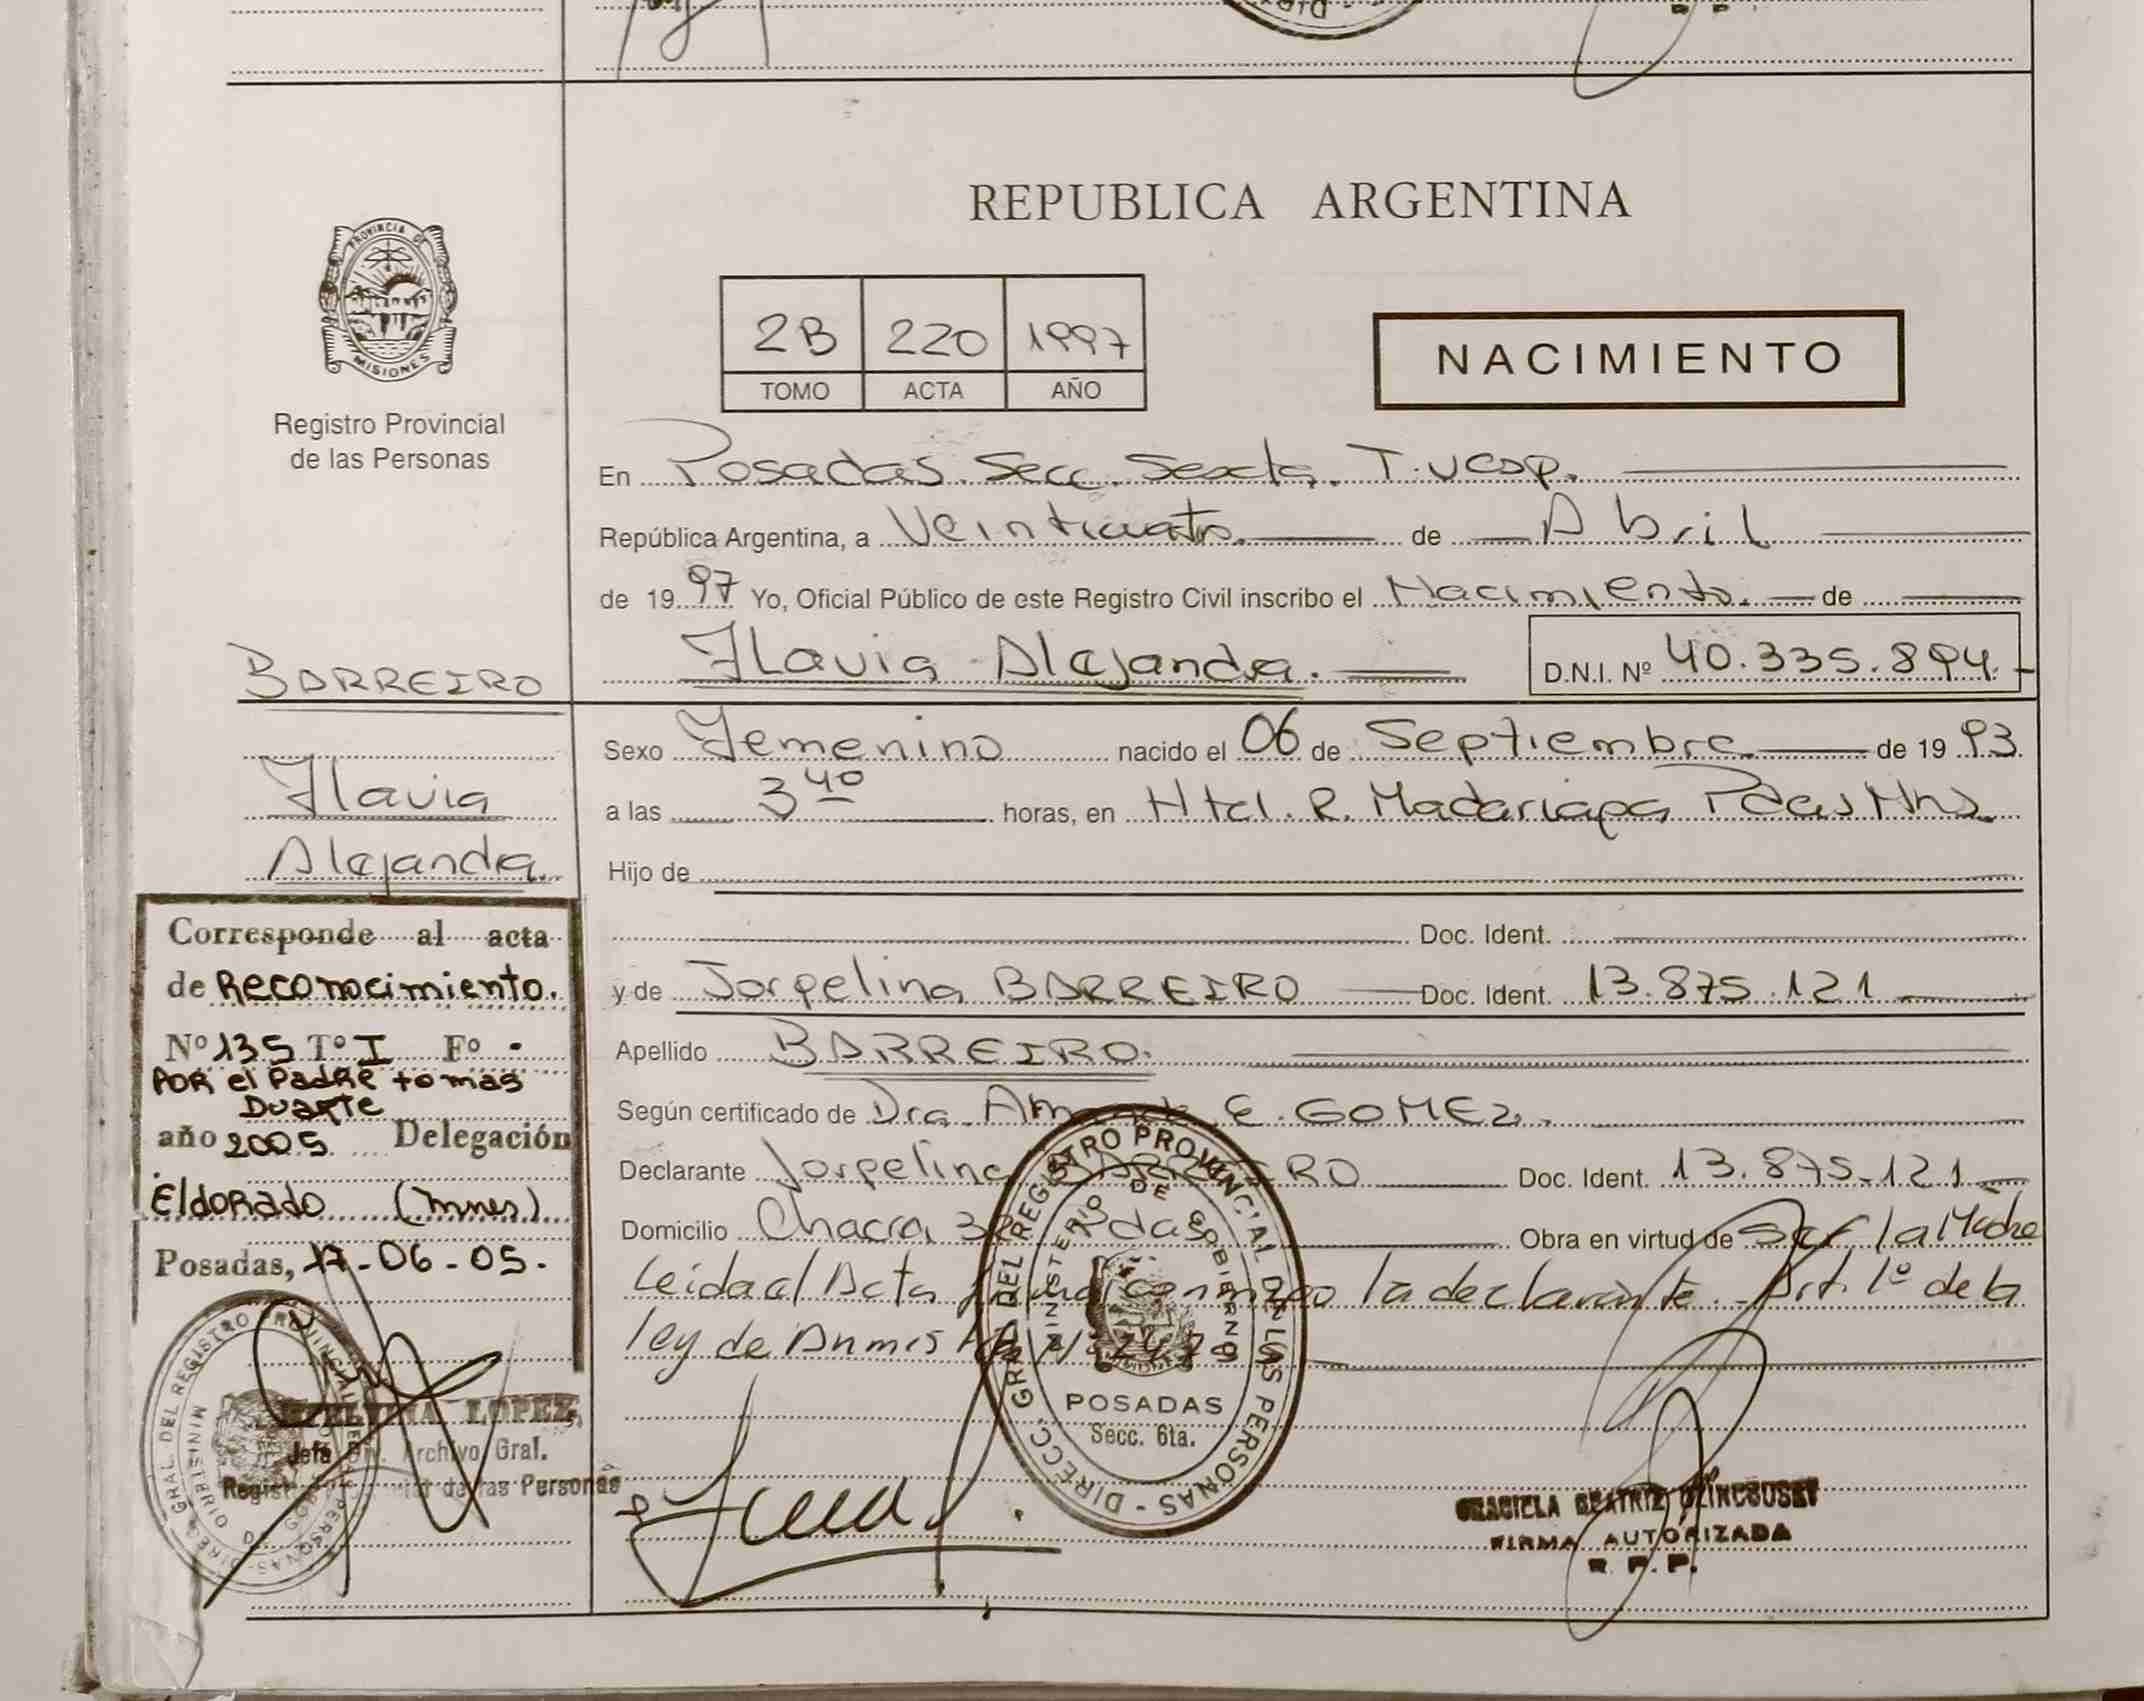 REPUBLICA ARGENTINA
PROVINCIA DE
MISIONES
Registro Provincial
de las Personas
2B 220 1997
TOMO ACTA AÑO
NACIMIENTO
En Posadas. Secc. Sexta.
República Argentina, a Veinticuatro. de Abril
de 1997 Yo, Oficial Público de este Registro Civil inscribo el Nacimiento. de
Flavia Alejandra. D.N.I. Nº 40.335.894.
BARREIRO
Flavia
Alejandra.
Sexo Femenino nacido el 06 de Septiembre de 1993.
a las 3 40 horas, en Htal. R. Madariaga Pdas Mns.
Hijo de
Doc. Ident.
y de Jorgelina BARREIRO Doc. Ident. 13.875.121
Apellido BARREIRO.
Según certificado de Dra. E. GOMEZ.
Declarante Jorgelina BARREIRO Doc. Ident. 13.875.121
Domicilio Chacra Pdas Obra en virtud de Ser la Madre
Leida el Acta conmigo la declarante. Art. 1º de la
ley de
Corresponde al acta
de Reconocimiento.
Nº 135 Tº I Fº -
POR el PADRE tomas
DUARTE
año 2005 Delegación
ELDORADO (mnes)
Posadas, 17-06-05.
LOPEZ
Jefa Archivo Gral.
de las Personas
DIRECC. GRAL DEL REGISTRO PROVINCIAL DE LAS PERSONAS
MINISTERIO DE GOBIERNO
POSADAS
Secc. 6ta.
GRACIELA BEATRIZ
FIRMA AUTORIZADA
R. P. P.